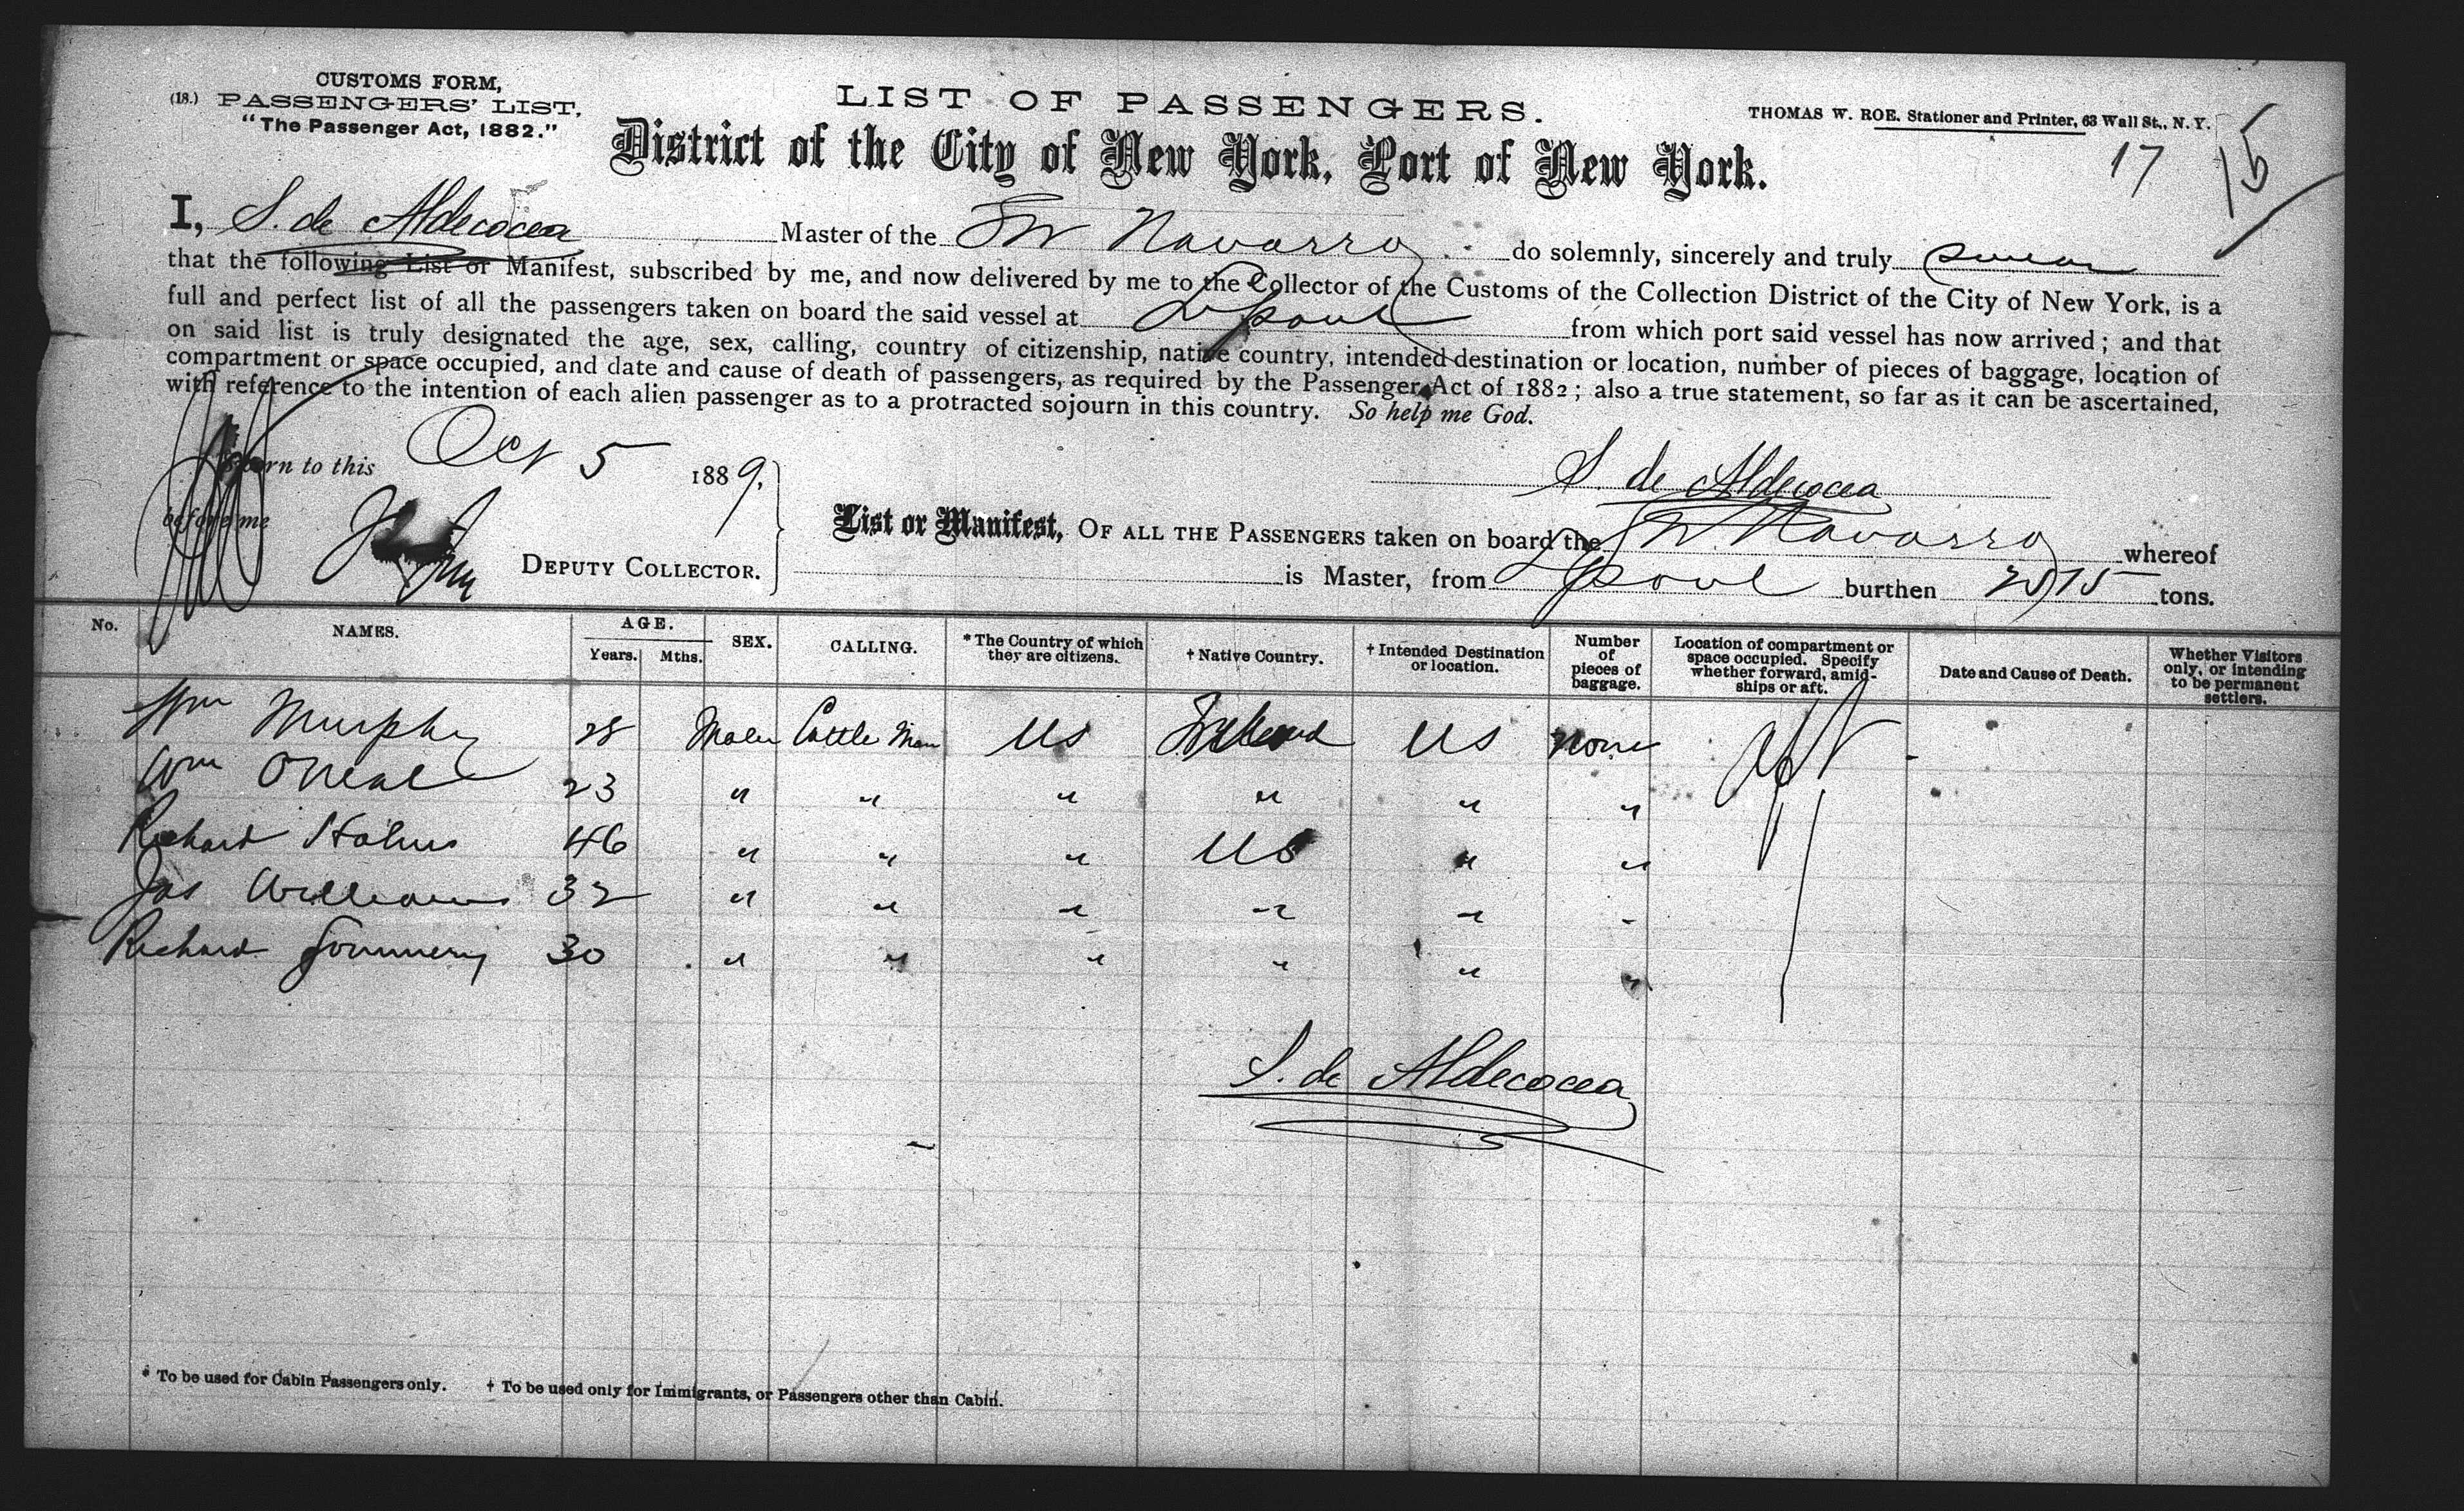 CUSTOMS FORM,
(18.) PASSENGERS' LIST,
"The Passenger Act, 1882."
LIST OF PASSENGERS.
THOMAS W. ROE. Stationer and Printer, 63 Wall St., N. Y.
District of the City of New York, Port of New York.
17 15
I, S. de Aldecocea Master of the Navarro do solemnly, sincerely and truly swear
that the following List or Manifest, subscribed by me, and now delivered by me to the Collector of the Customs of the Collection District of the City of New York, is a
full and perfect list of all the passengers taken on board the said vessel at L'pool from which port said vessel has now arrived; and that
on said list is truly designated the age, sex, calling, country of citizenship, native country, intended destination or location, number of pieces of baggage, location of
compartment or space occupied, and date and cause of death of passengers, as required by the Passenger Act of 1882; also a true statement, so far as it can be ascertained,
with reference to the intention of each alien passenger as to a protracted sojourn in this country. So help me God.
Sworn to this Oct 5 1889.
S. de Aldecocea
before me
DEPUTY COLLECTOR.
List or Manifest, OF ALL THE PASSENGERS taken on board the Navarro whereof
is Master, from L'pool burthen tons.
No. NAMES. AGE. Years. Mths. SEX. CALLING. * The Country of which they are citizens. † Native Country. † Intended Destination or location. Number of pieces of baggage. Location of compartment or space occupied. Specify whether forward, amidships or aft. Date and Cause of Death. Whether Visitors only, or intending to be permanent settlers.
Wm Murphy 28 Male Cattle Man US Ireland US None Aft
Wm ONeal 23 " " " " " "
Richard Holms 46 " " " US " "
Jas Williams 32 " " " " " "
Richard 30 " " " " " "
S. de Aldecocea
* To be used for Cabin Passengers only. † To be used only for Immigrants, or Passengers other than Cabin.